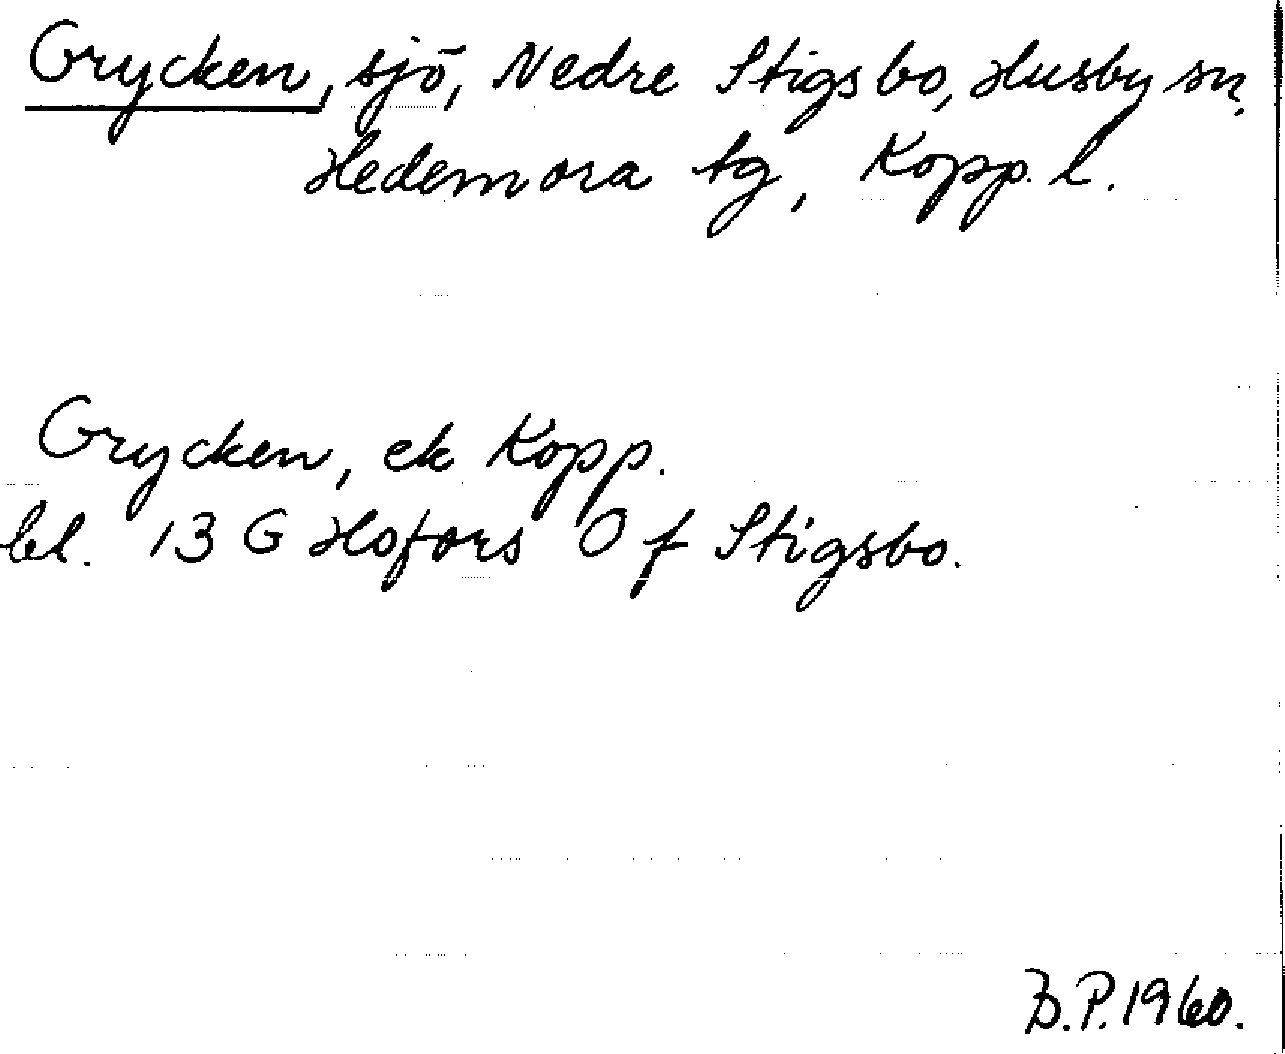 Grycken, sjö, Nedre Stigsbo, Husby sn,
Hedemora tg, Kopp. l.
Grycken, ek Kopp.
bl. 13 G Hofors O f Stigsbo.
B.P. 1960.